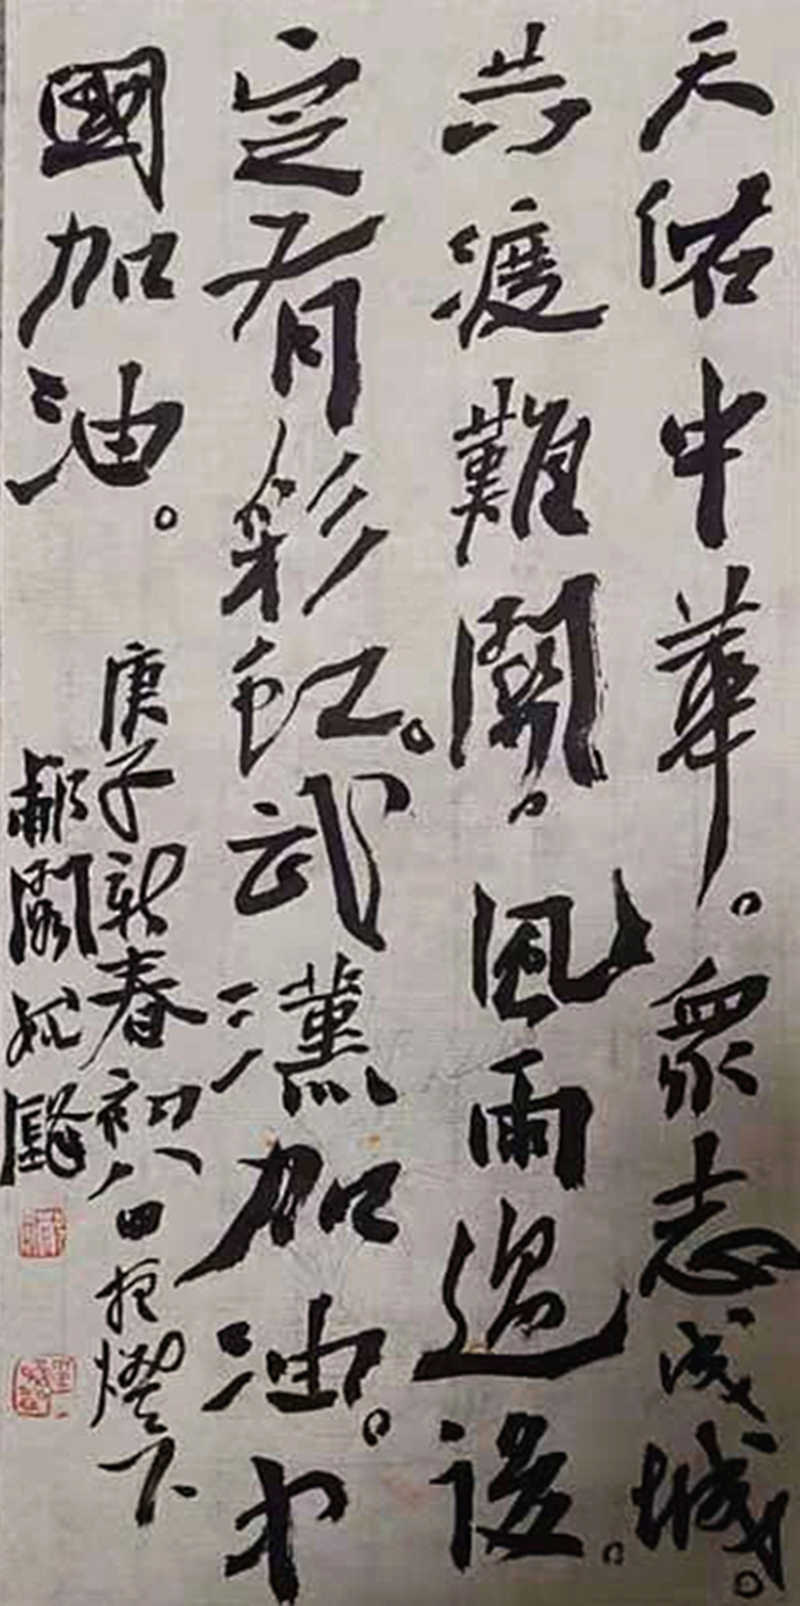 天佑中華。眾志成城。
共渡難關。風雨過後。
定有彩虹。武漢加油。中
國加油。
庚子新春初八日夜燈下